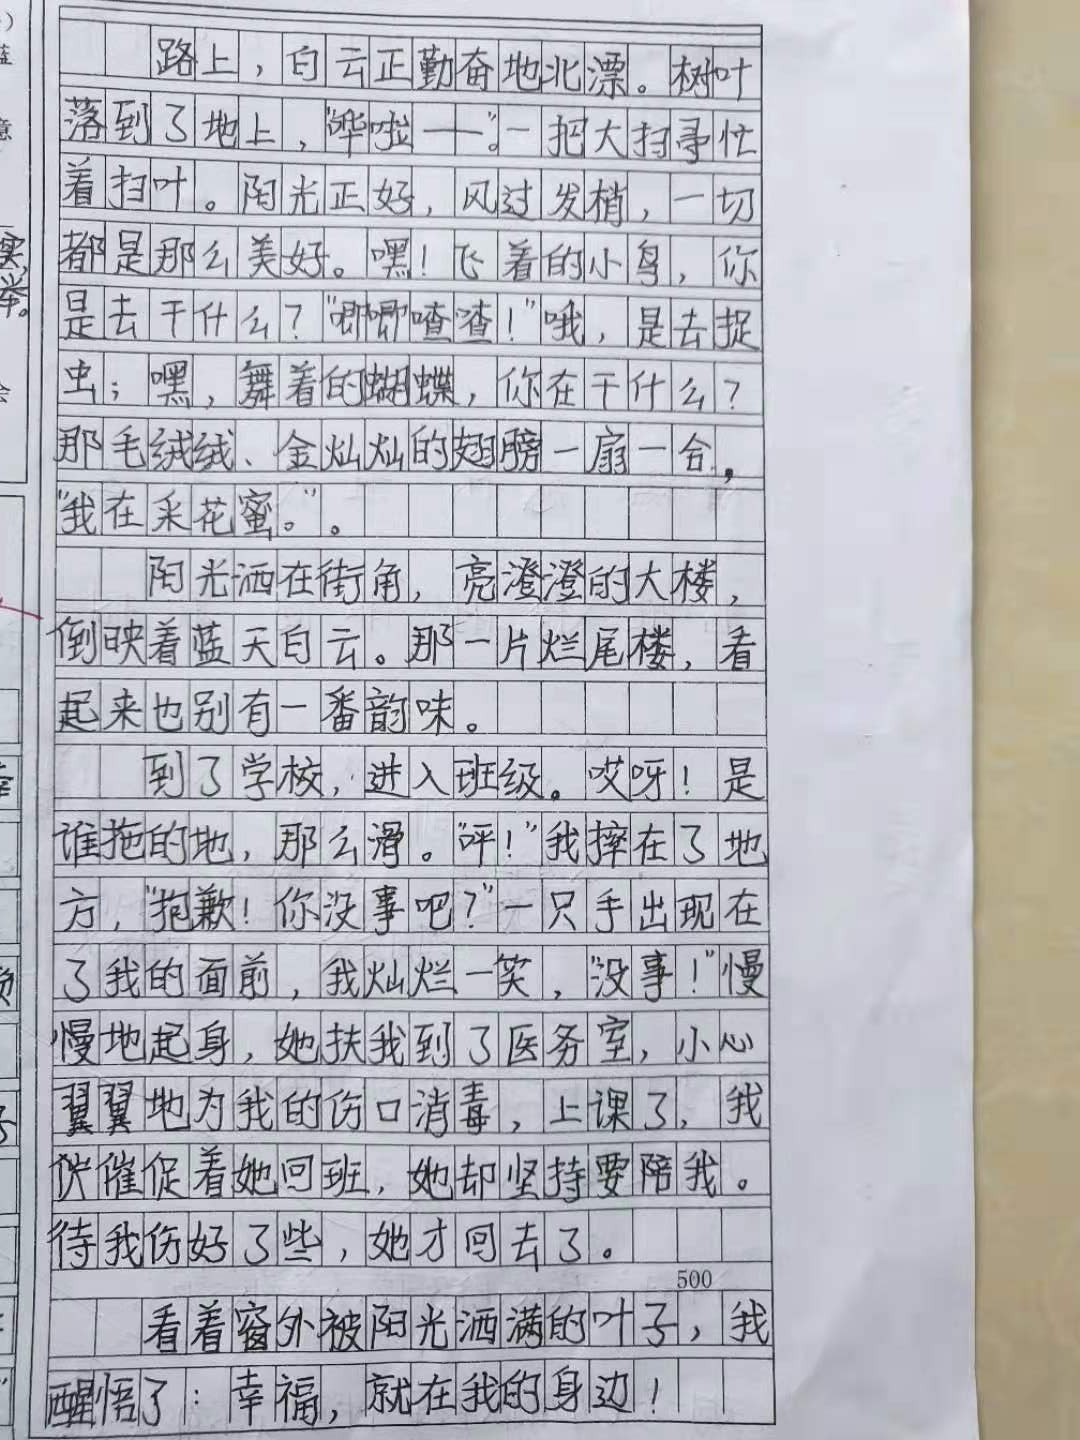 路上，白云正勤奋地北漂。树叶
落到了地上，“哗啦——”。一把大扫帚忙
着扫叶。阳光正好，风过发梢，一切
都是那么美好。嘿！飞着的小鸟，你
是去干什么？“唧唧喳渣！”哦，是去捉
虫；嘿，舞着的蝴蝶，你在干什么？
那毛绒绒、金灿灿的翅膀一扇一合，
“我在采花蜜。”。
阳光洒在街角，亮澄澄的大楼，
倒映着蓝天白云。那一片烂尾楼，看
起来也别有一番韵味。
到了学校，进入班级。哎呀！是
谁拖的地，那么滑。“呯！”我摔在了地
方，“抱歉！你没事吧？”一只手出现在
了我的面前，我灿烂一笑，“没事！”慢
慢地起身，她扶我到了医务室，小心
翼翼地为我的伤口消毒，上课了，我
催促着她回班，她却坚持要陪我。
待我伤好了些，她才回去了。
500
看着窗外被阳光洒满的叶子，我
醒悟了：幸福，就在我的身边！